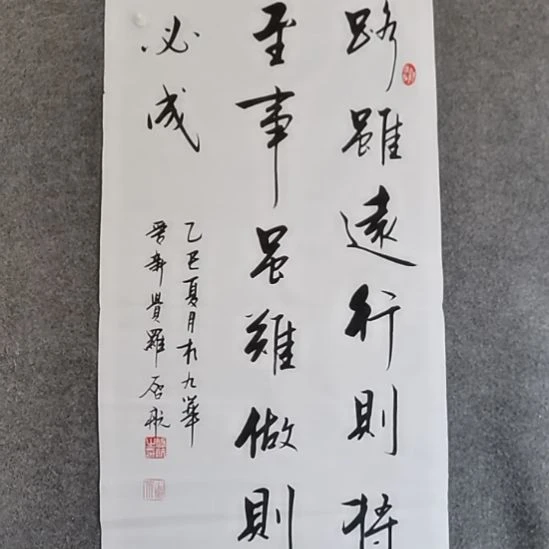 路雖遠行則將
至事雖難做則
必成
乙巳夏月於九華
晉新貴羅啓航